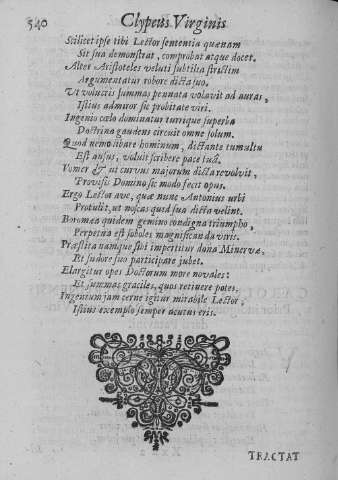 540 Clypeus Virginis
Scilicet ipse tibi Lector sententia quænam
Sit sua demonstrat, comprobat atque docet.
Alter Aristoteles veluti subtilia strictim
Argumentatur robore dicta suo.
Ut volucris summas pennata volavit ad auras,
Istius admiror sic probitate viri.
Ingenio cœlo dominatur turrique superba
Doctrina gaudens circuit omne solum.
Quod nemo libare hominum, dictante tumultu
Est ausus, voluit scribere pace tuâ.
Vomer & ut curvus majorum dicta revolvit,
Provisis Domino sic modo fecit opus.
Ergo Lector ave, quæ nunc Antonius urbi
Protulit, ut noscas quid sua dicta velint.
Boromæa quidem gemino condigna triumpho,
Perpetua est soboles magnificanda viris.
Præstita namque sibi impertitur dona Minervæ,
Et sudore suo participare jubet.
Elargitur opes Doctorum more novales:
Et summas graciles, quos retinere potes.
Ingenium jam cerne igitur mirabile Lector,
Istius exemplo semper acutus eris.
TRACTAT